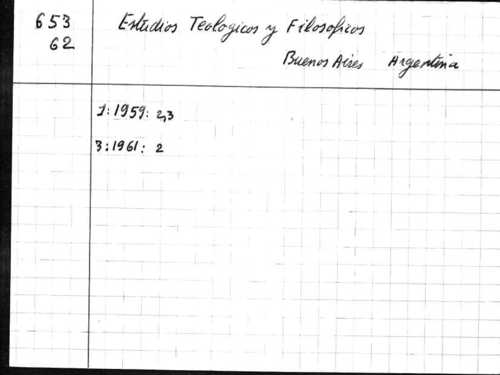 653
62
Estudios Teologicos y Filosoficos
Buenos Aires Argentina
1:1959: 2,3
3:1961: 2